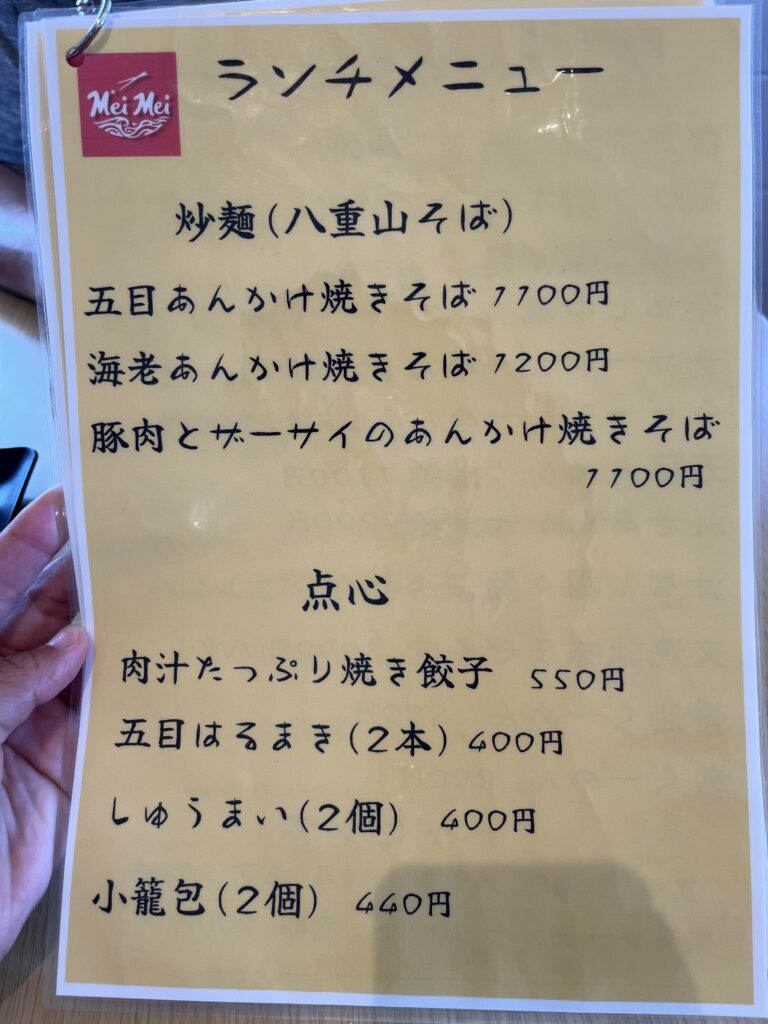 Mei Mei
ランチメニュー
炒麺(八重山そば)
五目あんかけ焼きそば 1100円
海老あんかけ焼きそば 1200円
豚肉とザーサイのあんかけ焼きそば
1100円
点心
肉汁たっぷり焼き餃子 550円
五目はるまき(2本) 400円
しゅうまい(2個) 400円
小籠包(2個) 440円